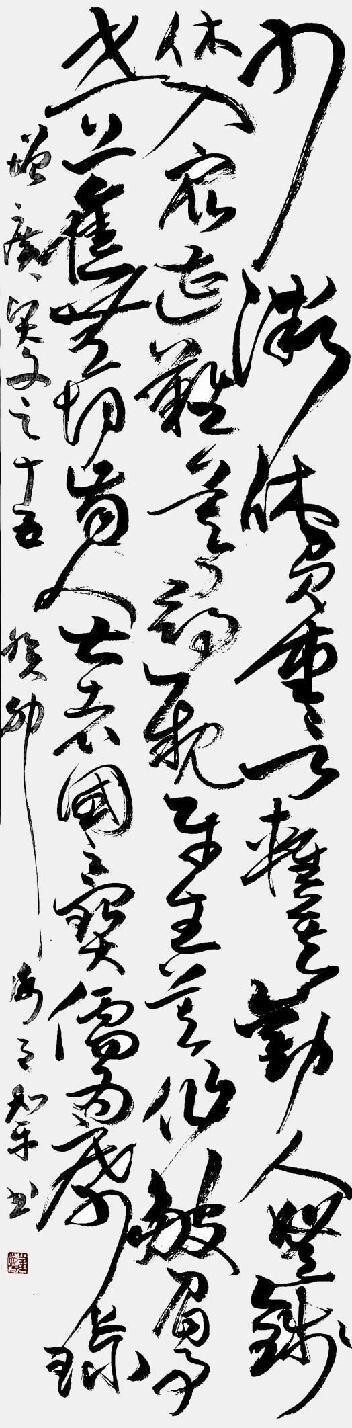 力微休負重言輕莫勸人無錢
休入眾遭難莫尋親平生莫作皺眉事
世上應無切齒人士者國之寶儒為席上珍
增廣賢文之十五 癸卯 和平書